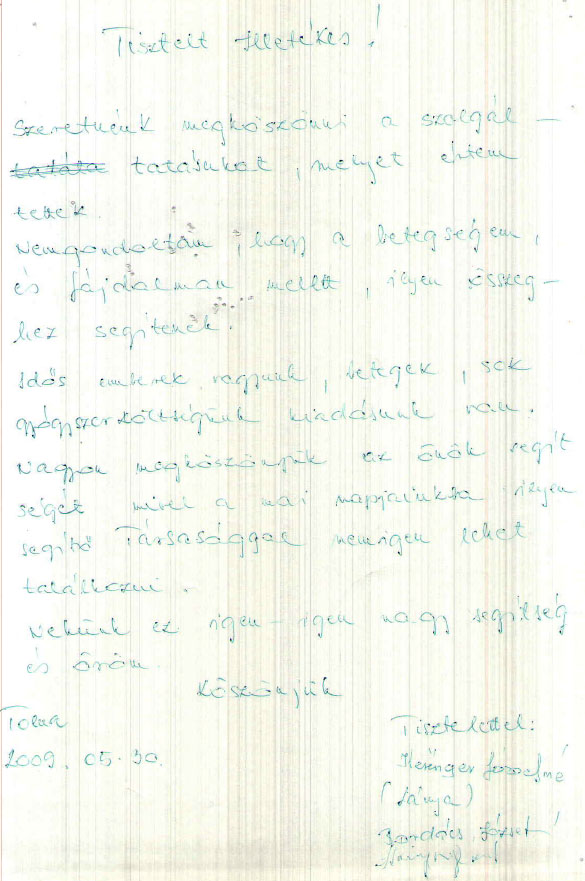 Tisztelt Illetékes!
Szeretnénk megköszönni a szolgál-
tatásukat, melyet értem
tettek.
Nemgondoltam, hogy a betegségem,
és fájdalmam mellett, ilyen összeg-
hez segítenek.
Idős emberek vagyunk, betegek, sok
gyógyszerköltségünk kiadásunk van.
Nagyon megköszönjük az önök segít
ségét mivel a mai napjainkba ilyen
segítő Társasággal nemigen lehet
találkozni.
Nekünk ez igen-igen nagy segítség
és öröm.
Köszönjük
Tolna
2009. 05. 30.
Tisztelettel:
Józsefné
(lánya)
József